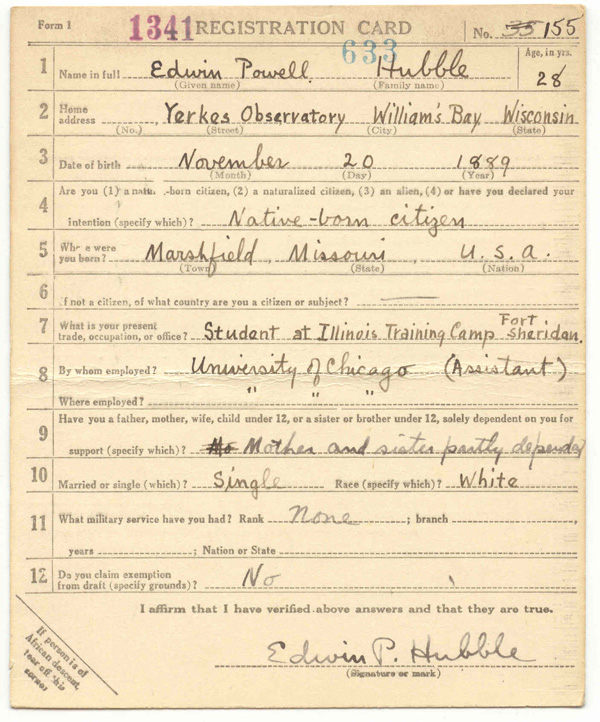 Form 1 1341 REGISTRATION CARD No. 35 155
633
1 Name in full Edwin Powell Hubble Age, in yrs. 28
(Given name) (Family name)
2 Home address Yerkes Observatory William's Bay Wisconsin
(No.) (Street) (City) (State)
3 Date of birth November 20 1889
(Month) (Day) (Year)
Are you (1) a natu -born citizen, (2) a naturalized citizen, (3) an alien, (4) or have you declared your
4 intention (specify which)? Native-born citizen
5 Where were you born? Marshfield, Missouri, U.S.A.
(Town) (State) (Nation)
6 If not a citizen, of what country are you a citizen or subject? ——
7 What is your present trade, occupation, or office? Student at Illinois Training Camp Fort Sheridan.
8 By whom employed? University of Chicago (Assistant)
Where employed? " " "
9 Have you a father, mother, wife, child under 12, or a sister or brother under 12, solely dependent on you for
support (specify which)? No Mother and sister partly dependent
10 Married or single (which)? Single Race (specify which)? White
11 What military service have you had? Rank None ; branch ,
years ; Nation or State
12 Do you claim exemption from draft (specify grounds)? No
I affirm that I have verified above answers and that they are true.
Edwin P. Hubble
(Signature or mark)
If person is of
African descent,
tear off this
corner